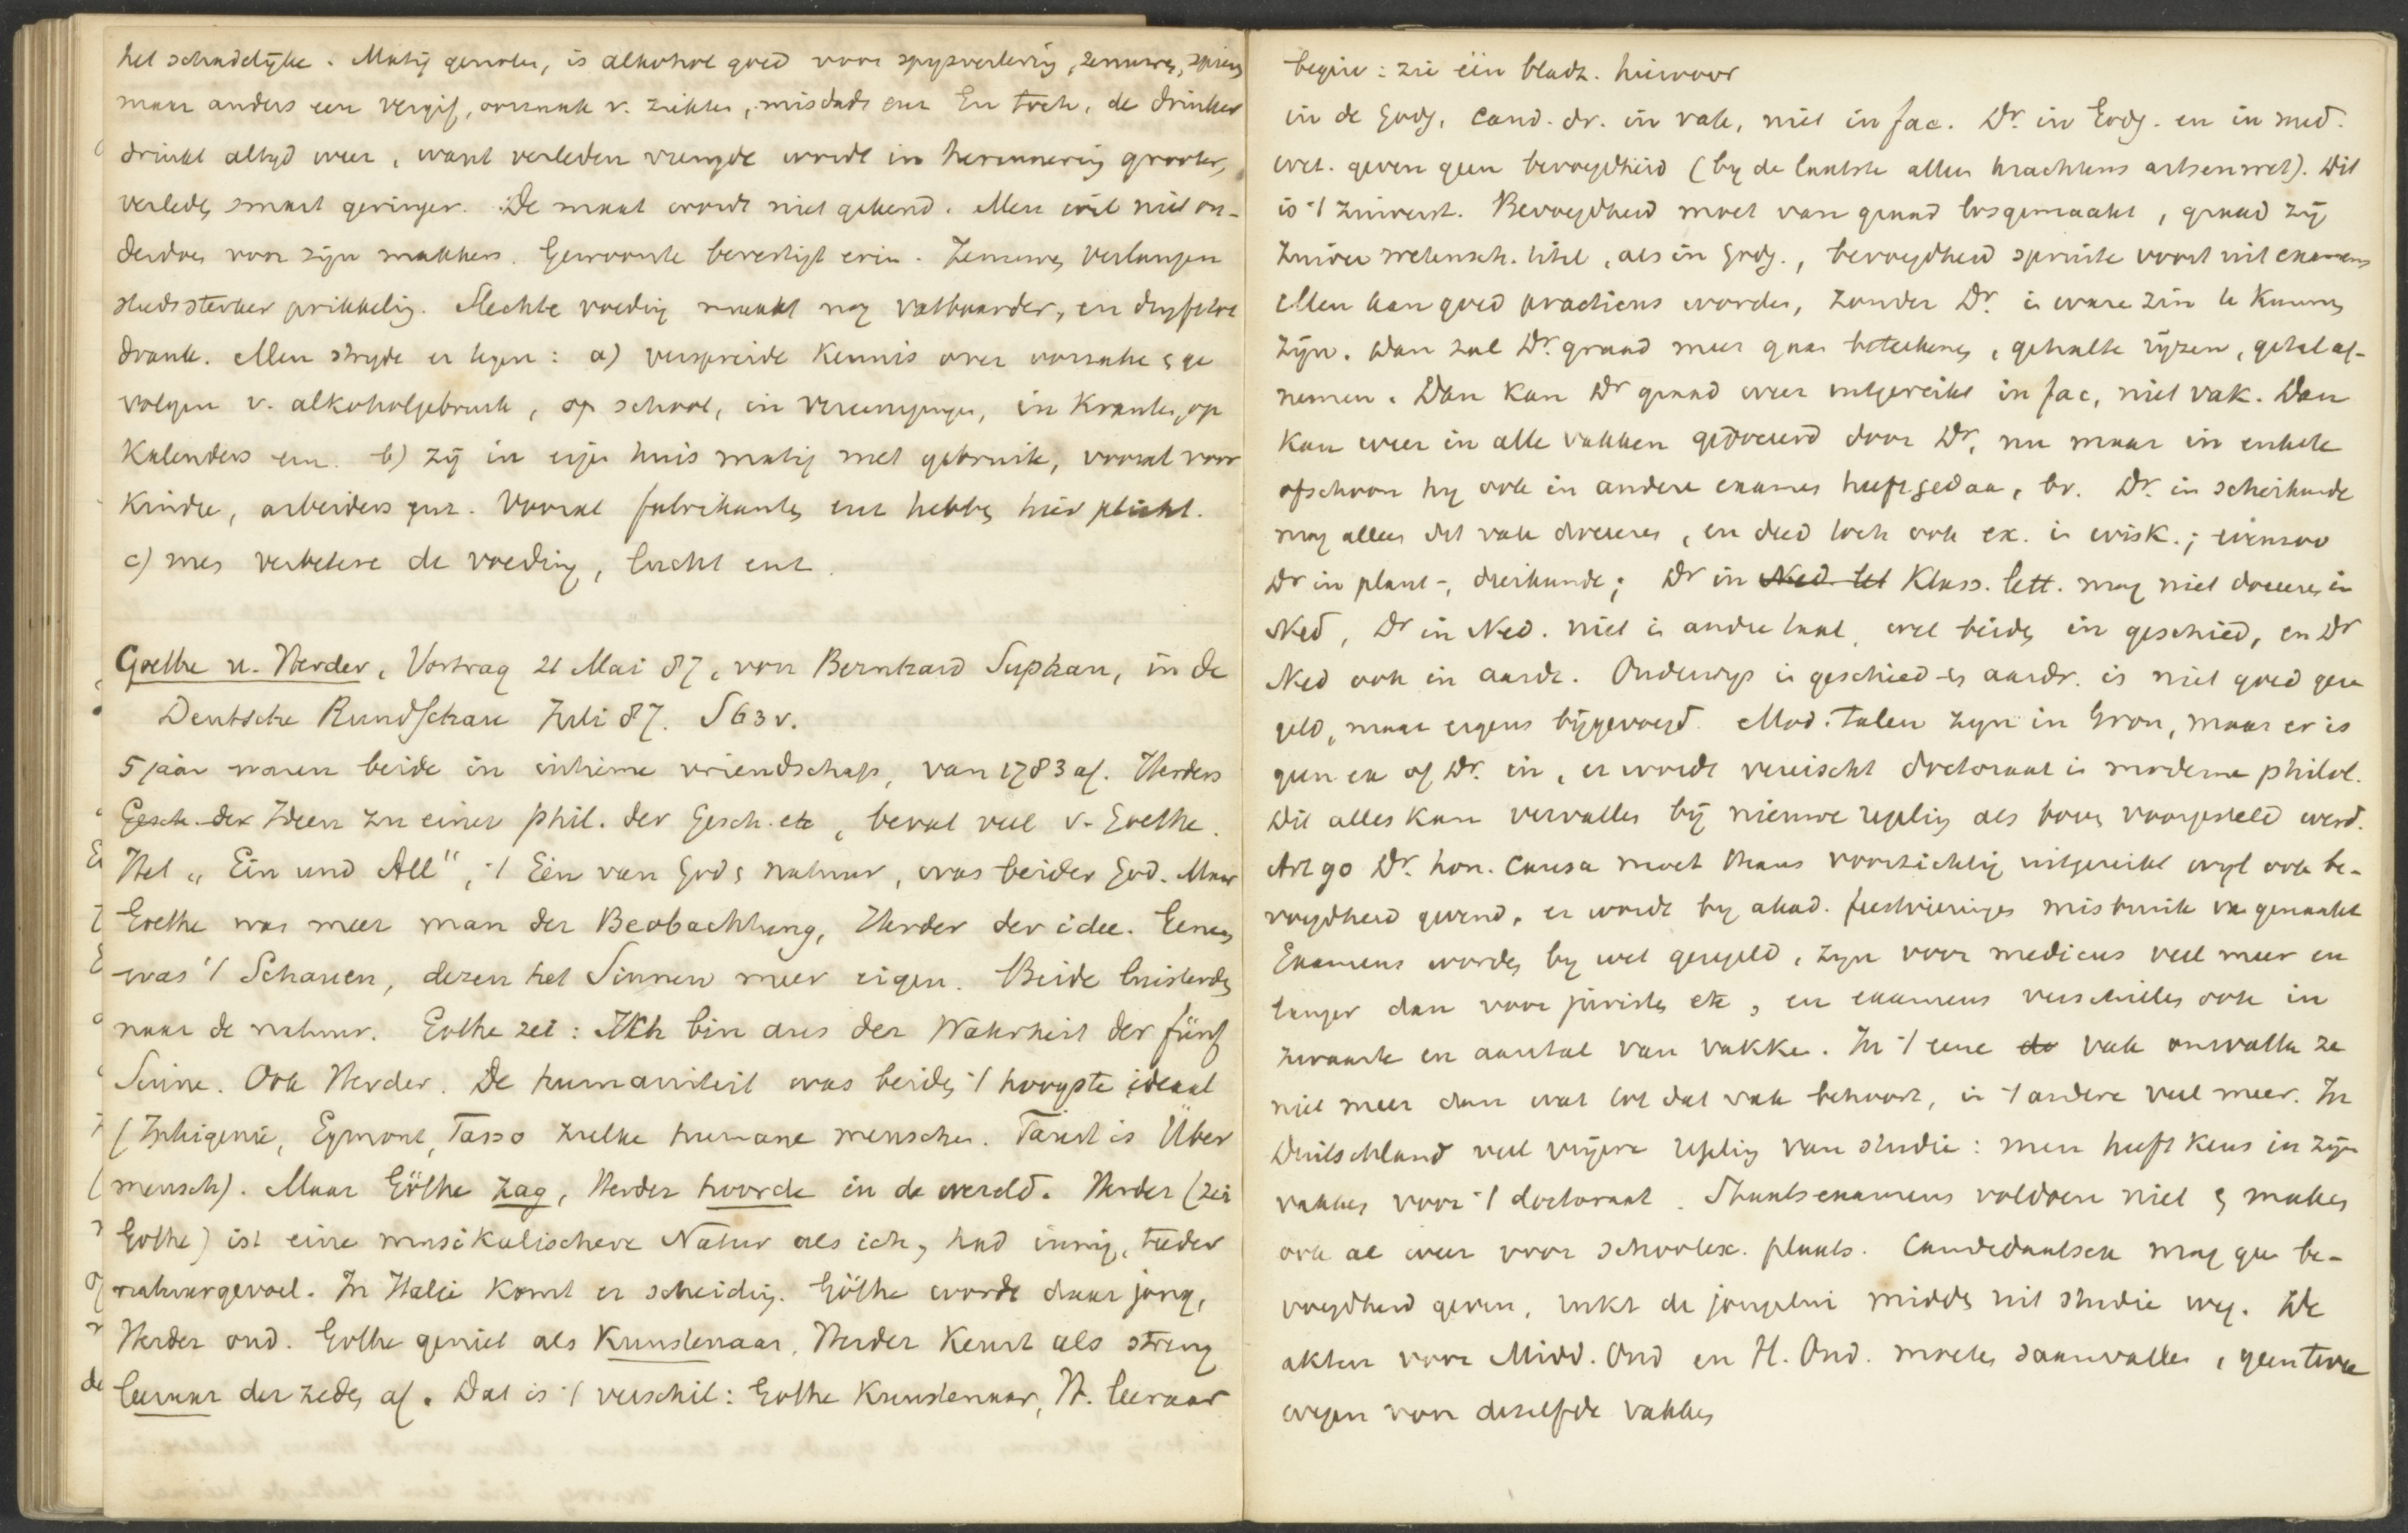 het schadelijke. Matig genoten, is alkohol goed voor spijsvertering, zenuwen, spieren
maar anders een vergif, oorzaak v. ziekten, misdaden enz En toch, de drinker
drinkt altyd weer, want verleden vreugde wordt in herinnering grooter,
verleden smart geringer. De maat wordt niet gekend. Men wil niet on-
derdoen voor zijn makkers. Gewoonte bevestigt erin. Zenuwen verlangen
steeds sterker prikkeling. Slechte voeding maakt nog vatbaarder, en dryft tot
drank. Men stryde er tegen: a) verspreide kennis over oorzaken en ge
volgen v. alkoholgebruik, op school, in vereenigingen, in kranten, op
Kalenders enz. b) zij in eigen huis matig met gebruik, vooral voor
kinderen, arbeiders enz. Vooral fabrikanten enz hebben hier plicht.
c) men verbetere de voeding, lucht enz.
Goethe u. Herder, Vortrag 21 Mai 87, von Bernhard Suphan, in de
Deutsche Rundschau Juli 87. S 63 v.
5 jaar waren beide in intieme vriendschap, van 1783 af. Herders
Gesch. der Ideen zu einer phil. der Gesch. etc, bevat veel v. Goethe.
Het „Ein und All", 't Eén van God en natuur, was beider God. Maar
Goethe was meer man der Beobachtung, Herder der idee. Eenen
was 't Schauen, dezen het Sinnen meer eigen. Beide luisterden
naar de natuur. Göthe zei: Ich bin aus der Wahrheit der fünf
Sinne. Ook Herder. De humaniteit was beiden 't hoogste ideaal
(Iphigenie, Egmont, Tasso zulke humane menschen. Faust is Über
mensch). Maar Göthe zag, Herder hoorde in de wereld. Herder (zei
Göthe) ist eine musikalischere Natur als ich, had innig, teeder
natuurgevoel. In Italie komt er scheiding. Göthe wordt daar jong,
Herder oud. Göthe geniet als Kunstenaar, Herder keurt als streng
leeraar der zeden af. Dat is 't verschil: Göthe Kunstenaar, H. leeraar
begin: zie één bladz. hiervoor
in de Godg. cand. dr. in vak, niet in fac. Dr. in Godg. en in med.
wet. geven geen bevoegdheid (by de laatste alleen krachtens artsenwet). Dit
is 't zuiverst. Bevoegdheid moet van graad losgemaakt, graad zij
zuiver wetensch. titel, als in Godg., bevoegdheid spruite voort uit examens
Men kan goed practicus worden, zonder Dr. in ware zin te kunnen
zijn. Dan zal Dr. graad meer gaan beteekenen, gehalte rijzen, getal af-
nemen. Dan kan Dr graad weer uitgereikt in fac, niet vak. Dan
kan weer in alle vakken gedoceerd door Dr, nu maar in enkele
ofschoon hy ook in andere examen heeft gedaan, bv. Dr. in scheikunde
mag alleen dit vak doceren, en deed toch ook ex. in wisk.; evenzoo
Dr in plant-, dierkunde; Dr in Ned. let Klass. lett. mag niet doceeren in
Ned, Dr in Ned. niet in andre taal, wel beiden in geschied, en Dr
Ned ook in aardr. Onderwys in geschied en aardr. is niet goed gere
geld, maar ergens bijgevoegd. Mod. talen zyn in Gron, maar er is
geen ex of Dr. in, er wordt vereischt doctoraat in moderne philol.
Dit alles kan vervallen bij nieuwe regeling als boven voorgesteld werd.
Art 90 Dr. hon. causa moet thans voorzichtig uitgereikt wyl ook be-
voegdheid gevend, er wordt by akad. feestvieringen misbruik van gemaakt
Examens worden by wet geregeld, zyn voor medicus veel meer en
langer dan voor juristen etc, en examens verschillen ook in
zwaarte en aantal van vakken. In 't eene do vak omvatten ze
niet meer dan wat tot dat vak behoort, in 't andere veel meer. In
Duitschland veel vrijere regeling van studie: men heeft keus in zijn
vakken voor 't doctoraat. Staatsexamens voldoen niet en maken
ook al weer voor schoolex. plaats. Candidaatsex mag geen be-
voegdheid geven, rukt de jongelui midden uit studie weg. De
akten voor Midd. Ond en H. Ond. moeten saamvallen, geen twee
wegen voor dezelfde vakken